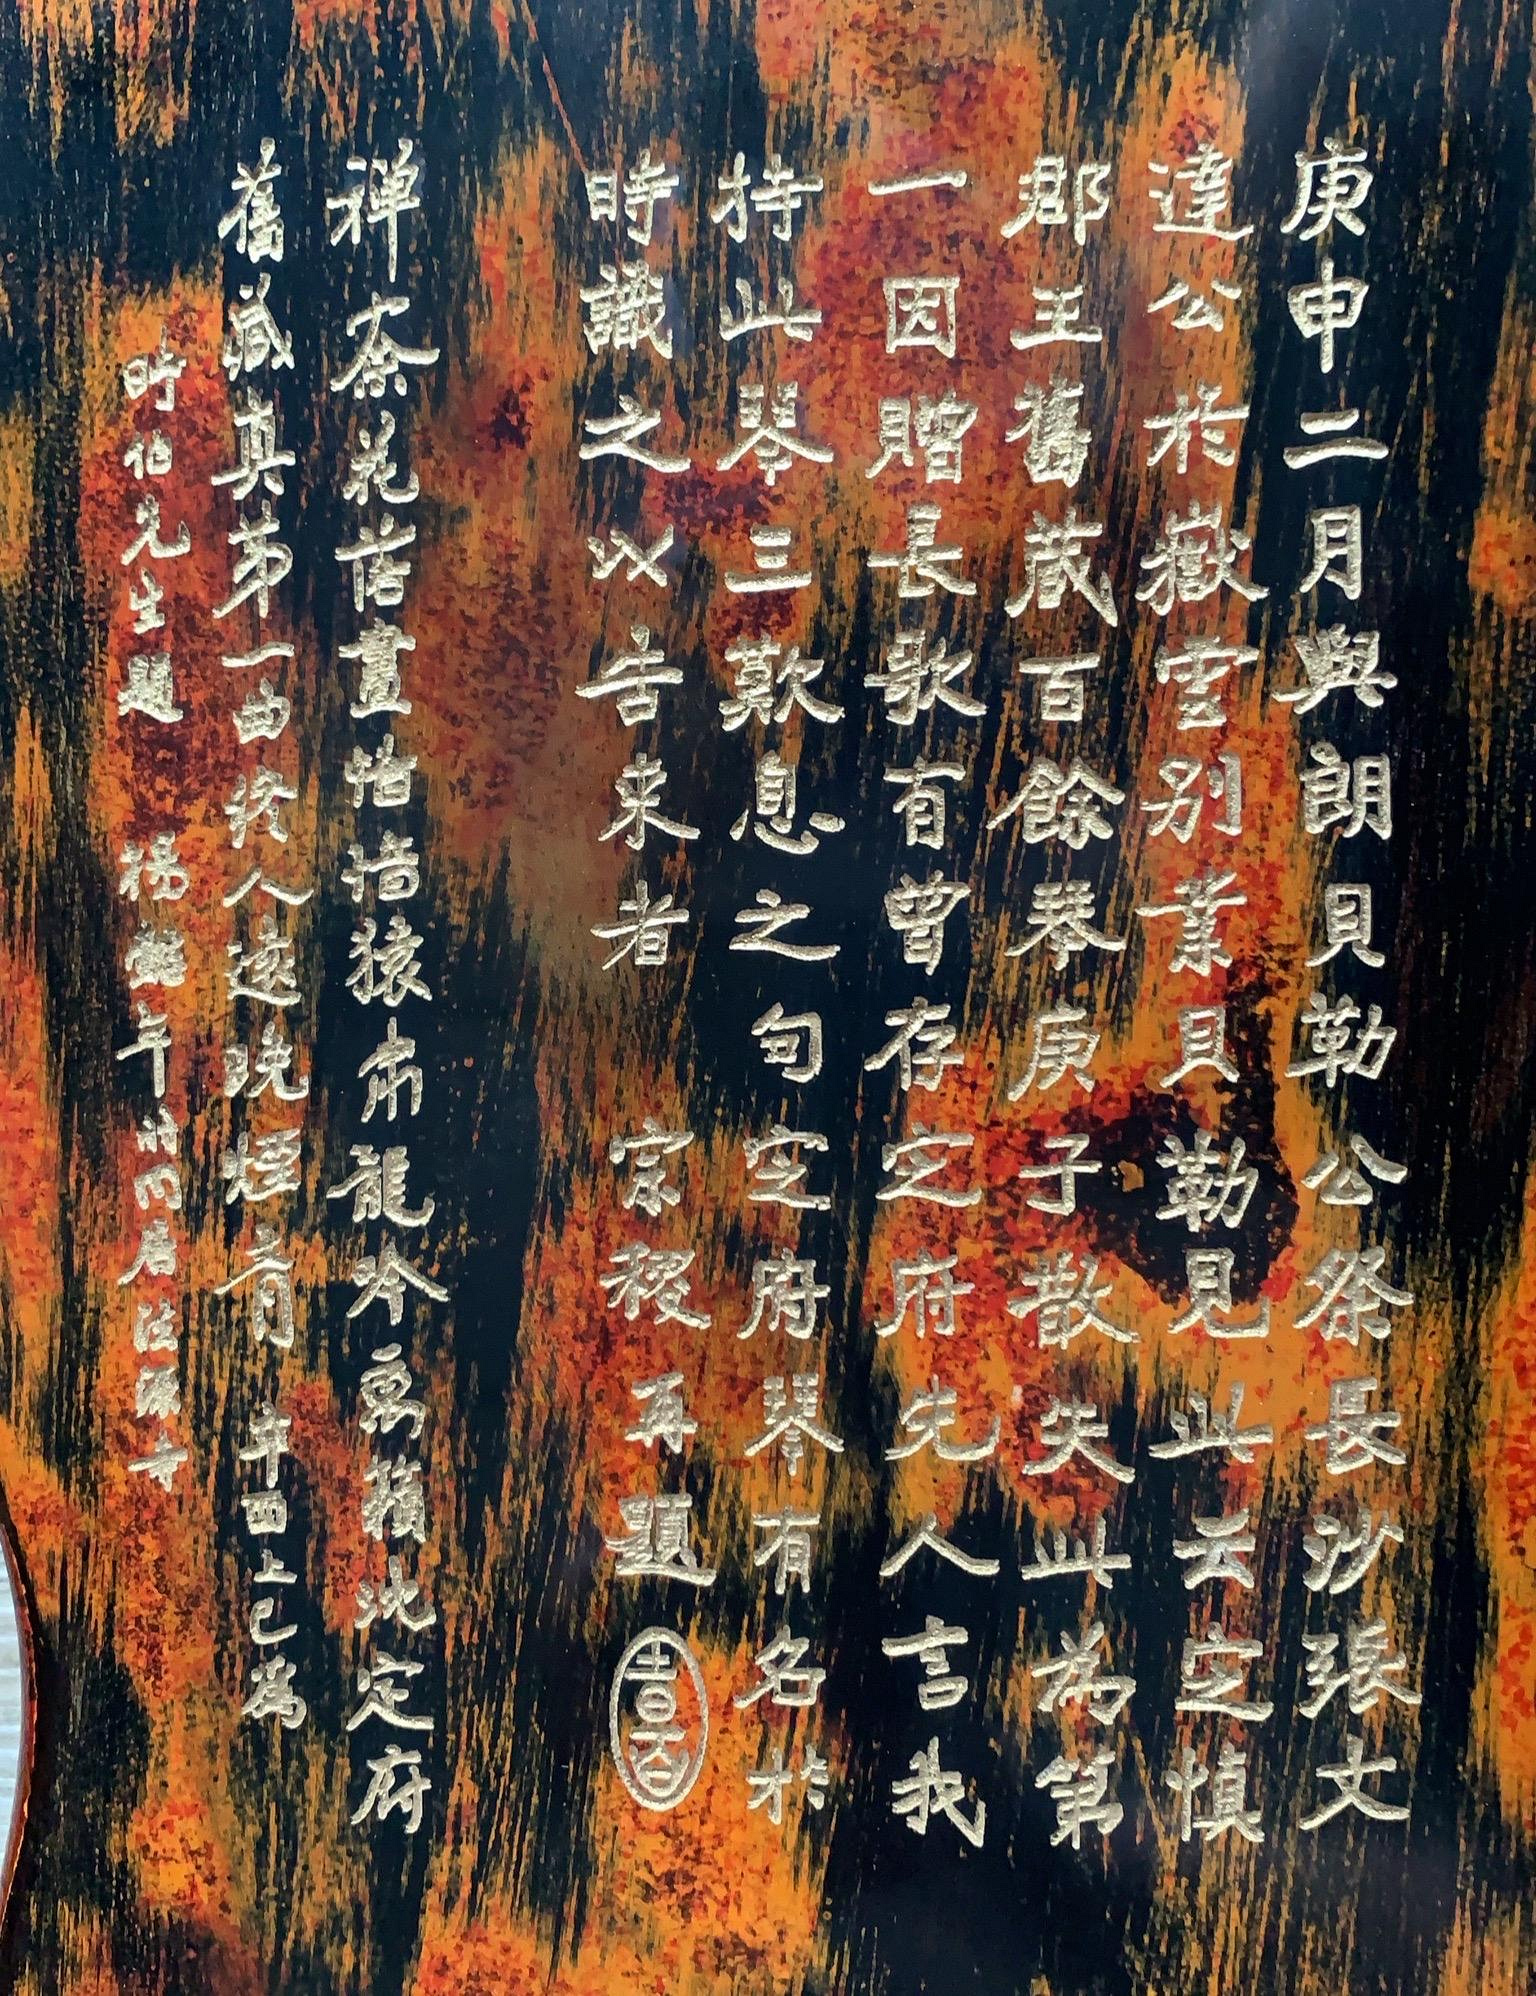 庚申二月與朗貝勒公祭長沙張文
達公於嶽雲別業貝勒見此云定慎
郡王舊藏百餘琴庚子散失此為第
一因贈長歌有曾存定府先人言我
持此琴三歎息之句定府琴有名於
時識之以告來者 宗稷再題
禅榛花落畫愔愔猿嘯龍吟萬籟此定府
舊藏真第一曲終人遠晚煙青 辛酉上巳為
時伯先生題 楊懿年時同居法源寺